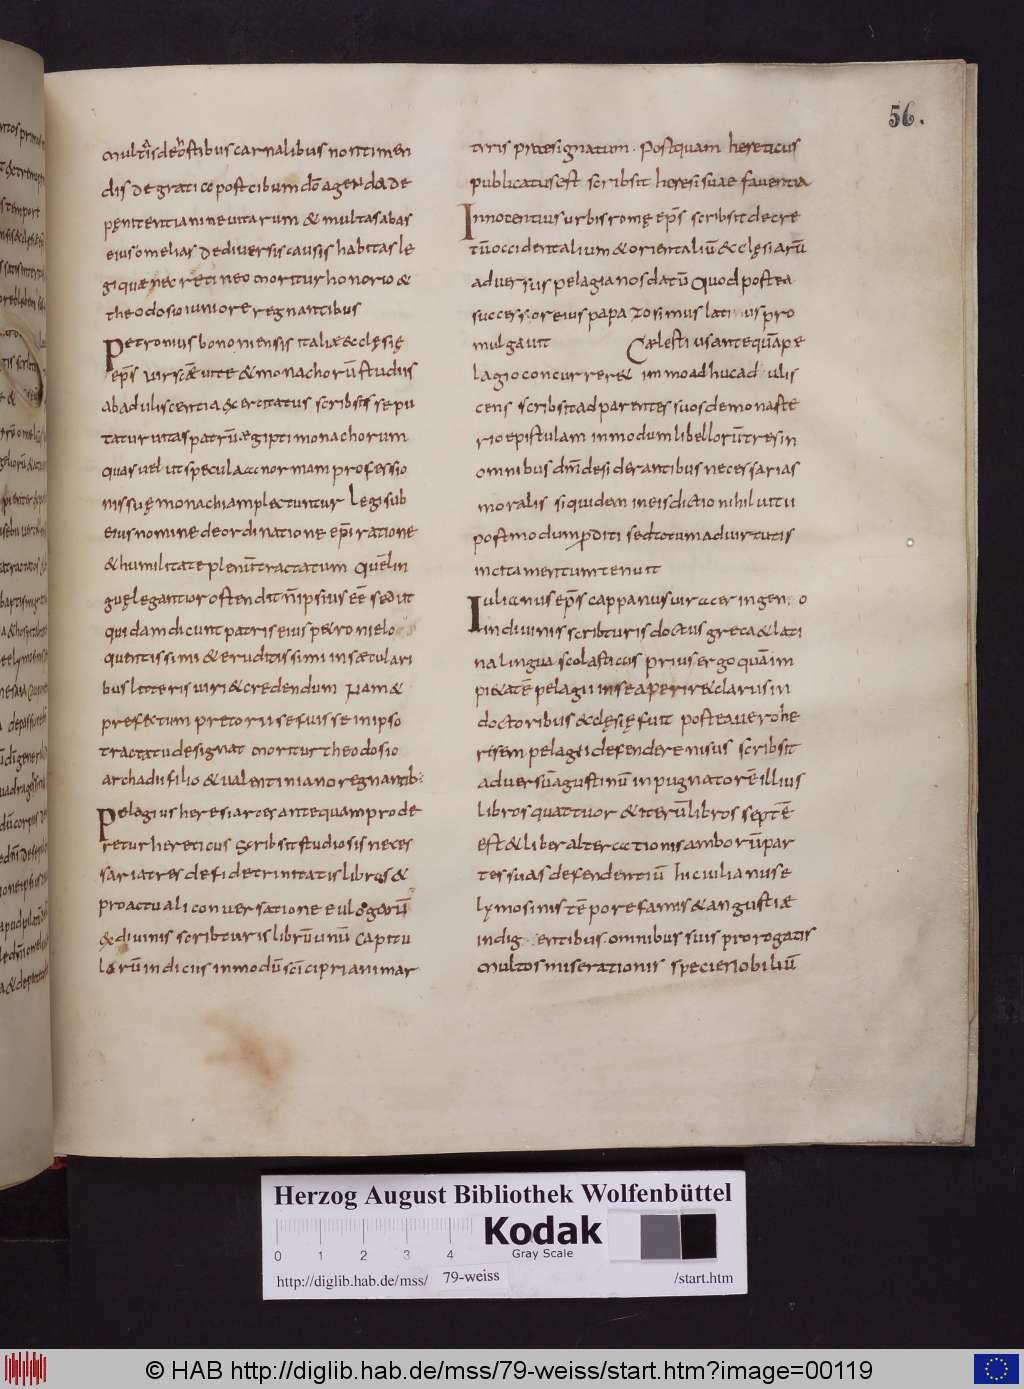 56.
multis de hostibus carnalibus non timen
dis de gratia post cibum dõ agenda de
penitentia nineuitarum & multas abas
eius omelias de diuersis causis habitas le
gi quæ nec retineo moritur honorio &
theodosio iuniore regnantibus
Petronius bononiensis italiæ ecclęsię
ep̄s uir scæ uitæ & monachorū studiis
ab aduliscentia exercitatus scribsit sepu
tatur uitas patrū ægipti monachorum
quas uelut specula ac normam professio
nis suę monachi amplectuntur Legi sub
eius nomine de ordinatione ep̄i ratione
& humilitate plenū tractatum quē lin
gua elegantior ostendit n̄ ipsius eē sed ut
quidam dicunt patris eius petronii elo
quentissimi & eruditissimi in sæculari
bus litteris uiri & credendum Nam &
prefectum pretorii se fuisse in ipso
tractatu designat moritur theodosio
archadii filio & ualentiniano regnantib:
Pelagius heresiarces antequam prode
retur hereticus Scribsit studiosis neces
saria tres de fide trinitatis libros &
pro actuali conuersatione eulogiarū
ex diuinis scribturis librū unū capitu
lorū indiciis in modū sci cipriani mar
tiris præsignatum. Postquam hereticus
publicatus est scribsit heresi suae fauentia
Innocentius urbis romę ep̄s scribsit decre
tū occidentalium & orientaliū ecclęsiarū
aduersus pelagianos datū Quod postea
successor eius papa zosimus latius pro
mulgauit
Cælestius antequā pe
lagio concurrer& immo adhuc adulis
cens scribsit ad parentes suos de monaste
rio epistulam in modum libellorū tres in
omnibus dm̄ desiderantibus necessarias
moralis siquidem in eis dictio nihil uitii
postmodum proditi sed totum ad uirtutis
incitamentum tenuit
Iulianus ep̄s cappanus uir acer ingenio
in diuinis scribturis doctus greca & lati
na lingua scolasticus prius ergo quā im
pi&atē pelagii in se aperir& clarus in
doctoribus ecclęsię fuit postea uero he
resem pelagii defendere nisus scribsit
aduersū agustinū inpugnatorē illius
libros quattuor & iterū libros septē
est & liber altercationis amborū par
tes suas defendentiū hic iulianus e
lymosinis tēpore famis & angustiæ
indigentibus omnibus suis prorogatis
multos miserationis specie nobiliū
Herzog August Bibliothek Wolfenbüttel
0 1 2 3 4
Kodak
Gray Scale
http://diglib.hab.de/mss/ 79-weiss /start.htm
© HAB http://diglib.hab.de/mss/79-weiss/start.htm?image=00119